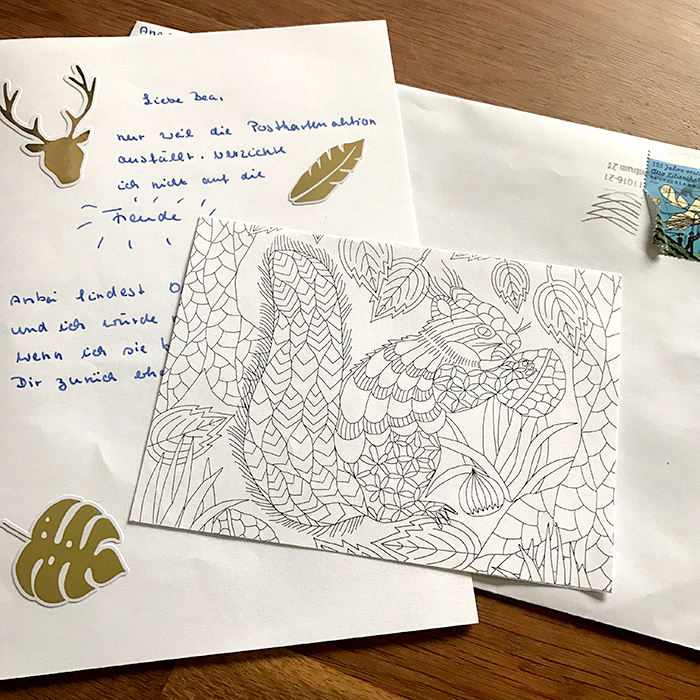 Liebe Bea,
nur weil die Postkartenaktion
ausfällt, verzichte
ich nicht auf die
Freude
Anbei findest D
und ich würde
wenn ich sie
Dir zurück erha
125 Jahre
Otto Lilienthal